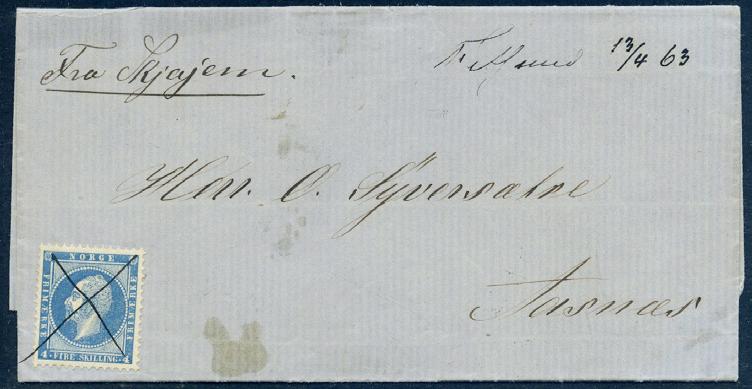 Fra Skjajem.
13/4 63
Herr. O. Syversætre
Aasnæs
NORGE
FRIMÆRKE
FRIMÆRKE
4 · FIRE SKILLING · 4